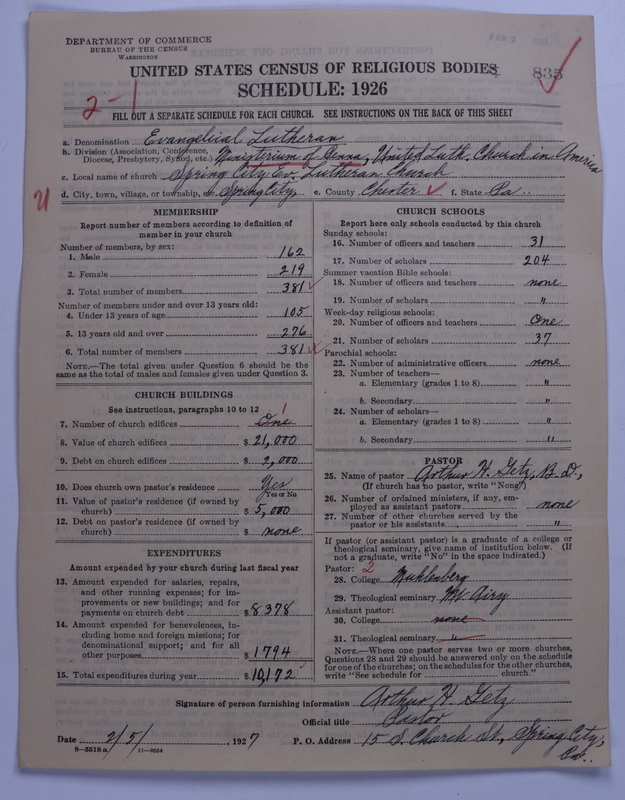 DEPARTMENT OF COMMERCE
BUREAU OF THE CENSUS
WASHINGTON
UNITED STATES CENSUS OF RELIGIOUS BODIES
835
SCHEDULE: 1926
2-1
FILL OUT A SEPARATE SCHEDULE FOR EACH CHURCH. SEE INSTRUCTIONS ON THE BACK OF THIS SHEET
a. Denomination Evangelical Lutheran
b. Division (Association, Conference, Diocese, Presbytery, Synod, etc.) Ministerium of Penna, United Luth. Church in America
c. Local name of church Spring City Ev. Lutheran Church
d. City, town, village, or township, etc. Spring City, e. County Chester f. State Pa.
MEMBERSHIP
Report number of members according to definition of
member in your church
Number of members, by sex:
1. Male 162
2. Female 219
3. Total number of members 381
Number of members under and over 13 years old:
4. Under 13 years of age 105
5. 13 years old and over 276
6. Total number of members 381
NOTE.—The total given under Question 6 should be
same as the total of males and females given under Question 3.
CHURCH BUILDINGS
See instructions, paragraphs 10 to 12
1
7. Number of church edifices One
8. Value of church edifices $ 21,000
9. Debt on church edifices $ 2,000
10. Does church own pastor's residence Yes
Yes or No
11. Value of pastor's residence (if owned by
church) $ 5,000
12. Debt on pastor's residence (if owned by
church) $ none
EXPENDITURES
Amount expended by your church during last fiscal year
13. Amount expended for salaries, repairs,
and other running expenses; for im-
provements or new buildings; and for
payments on church debt $ 8378
14. Amount expended for benevolences, in-
cluding home and foreign missions; for
denominational support; and for all
other purposes $ 1794
15. Total expenditures during year $ 10,172
CHURCH SCHOOLS
Report here only schools conducted by this church
Sunday schools:
16. Number of officers and teachers 31
17. Number of scholars 204
Summer vacation Bible schools:
18. Number of officers and teachers none
19. Number of scholars "
Week-day religious schools:
20. Number of officers and teachers One
21. Number of scholars 37
Parochial schools:
22. Number of administrative officers none
23. Number of teachers—
a. Elementary (grades 1 to 8) "
b. Secondary "
24. Number of scholars—
a. Elementary (grades 1 to 8) "
b. Secondary "
PASTOR
25. Name of pastor Arthur H. Getz, B.D.,
(If church has no pastor, write "None")
26. Number of ordained ministers, if any, em-
ployed as assistant pastors none
27. Number of other churches served by the
pastor or his assistants "
If pastor (or assistant pastor) is a graduate of a college or
theological seminary, give name of institution below. (If
not a graduate, write "No" in the space indicated.)
Pastor: 2
28. College Muhlenberg
29. Theological seminary Mt. Airy
Assistant pastor:
30. College none
31. Theological seminary "
NOTE.—Where one pastor serves two or more churches,
Questions 28 and 29 should be answered only on the schedule
for one of the churches; on the schedules for the other churches,
write "See schedule for church."
Signature of person furnishing information Arthur H. Getz
Official title Pastor
Date 2/5/, 1927 P. O. Address 15 S. Church St., Spring City,
Pa..
8-5518a 11-9654